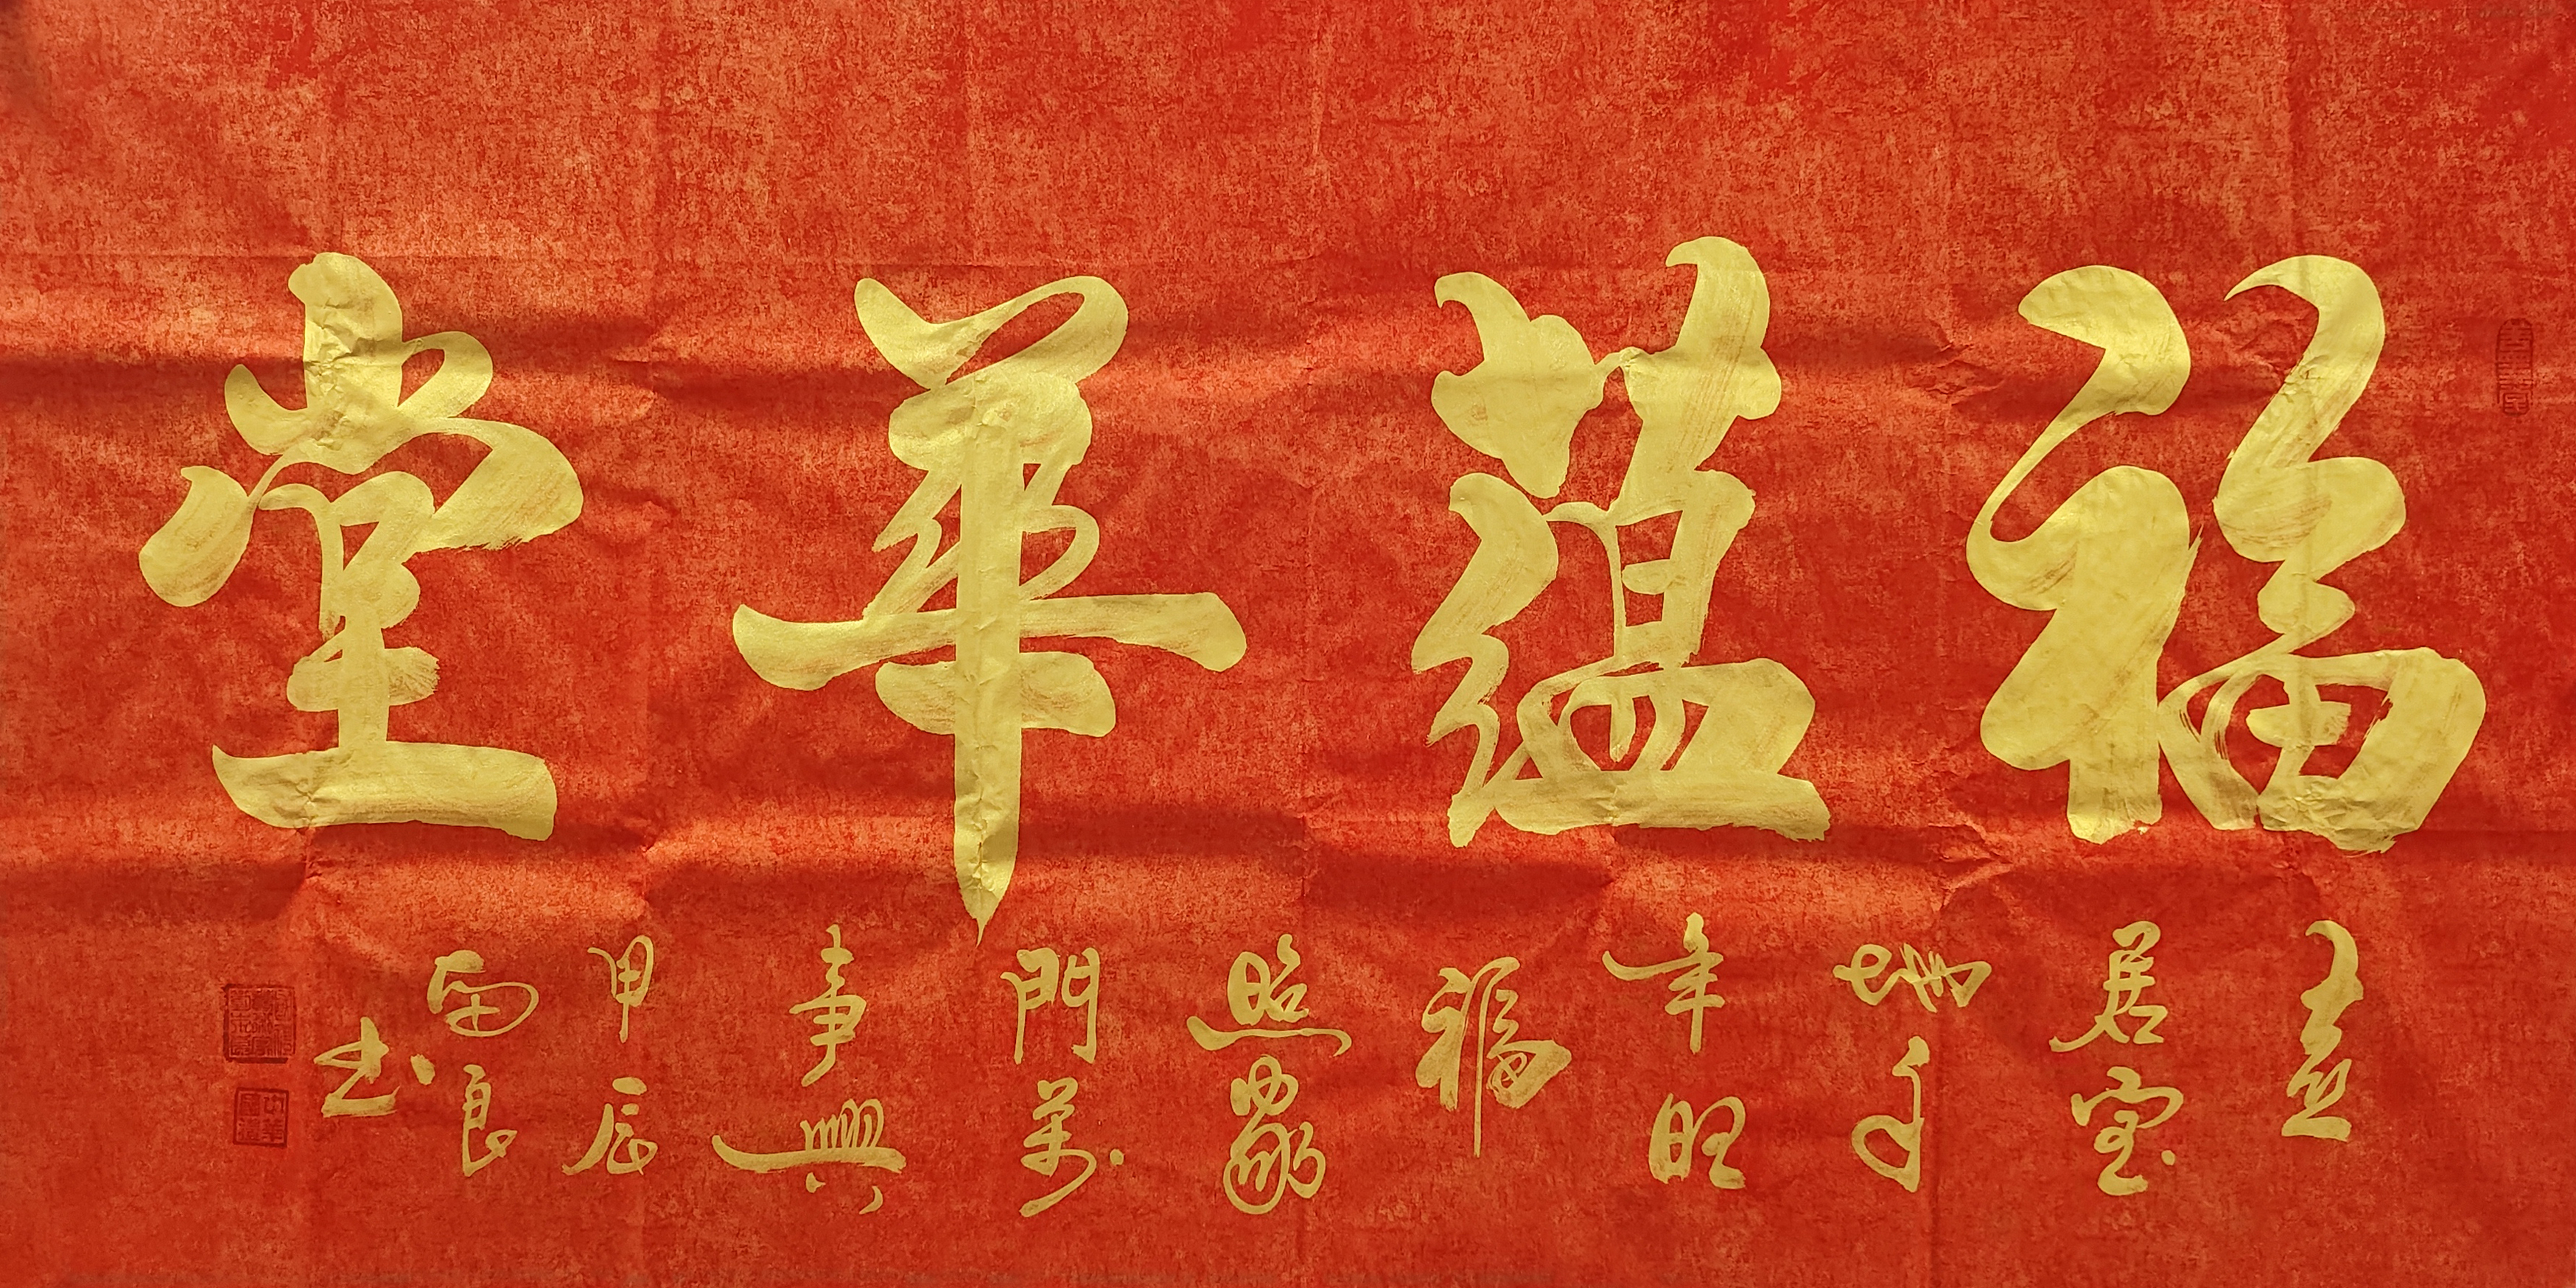 福蘊華堂
喜
居宝
地千
年旺
福
照家
門萬
事興
甲辰
良
书